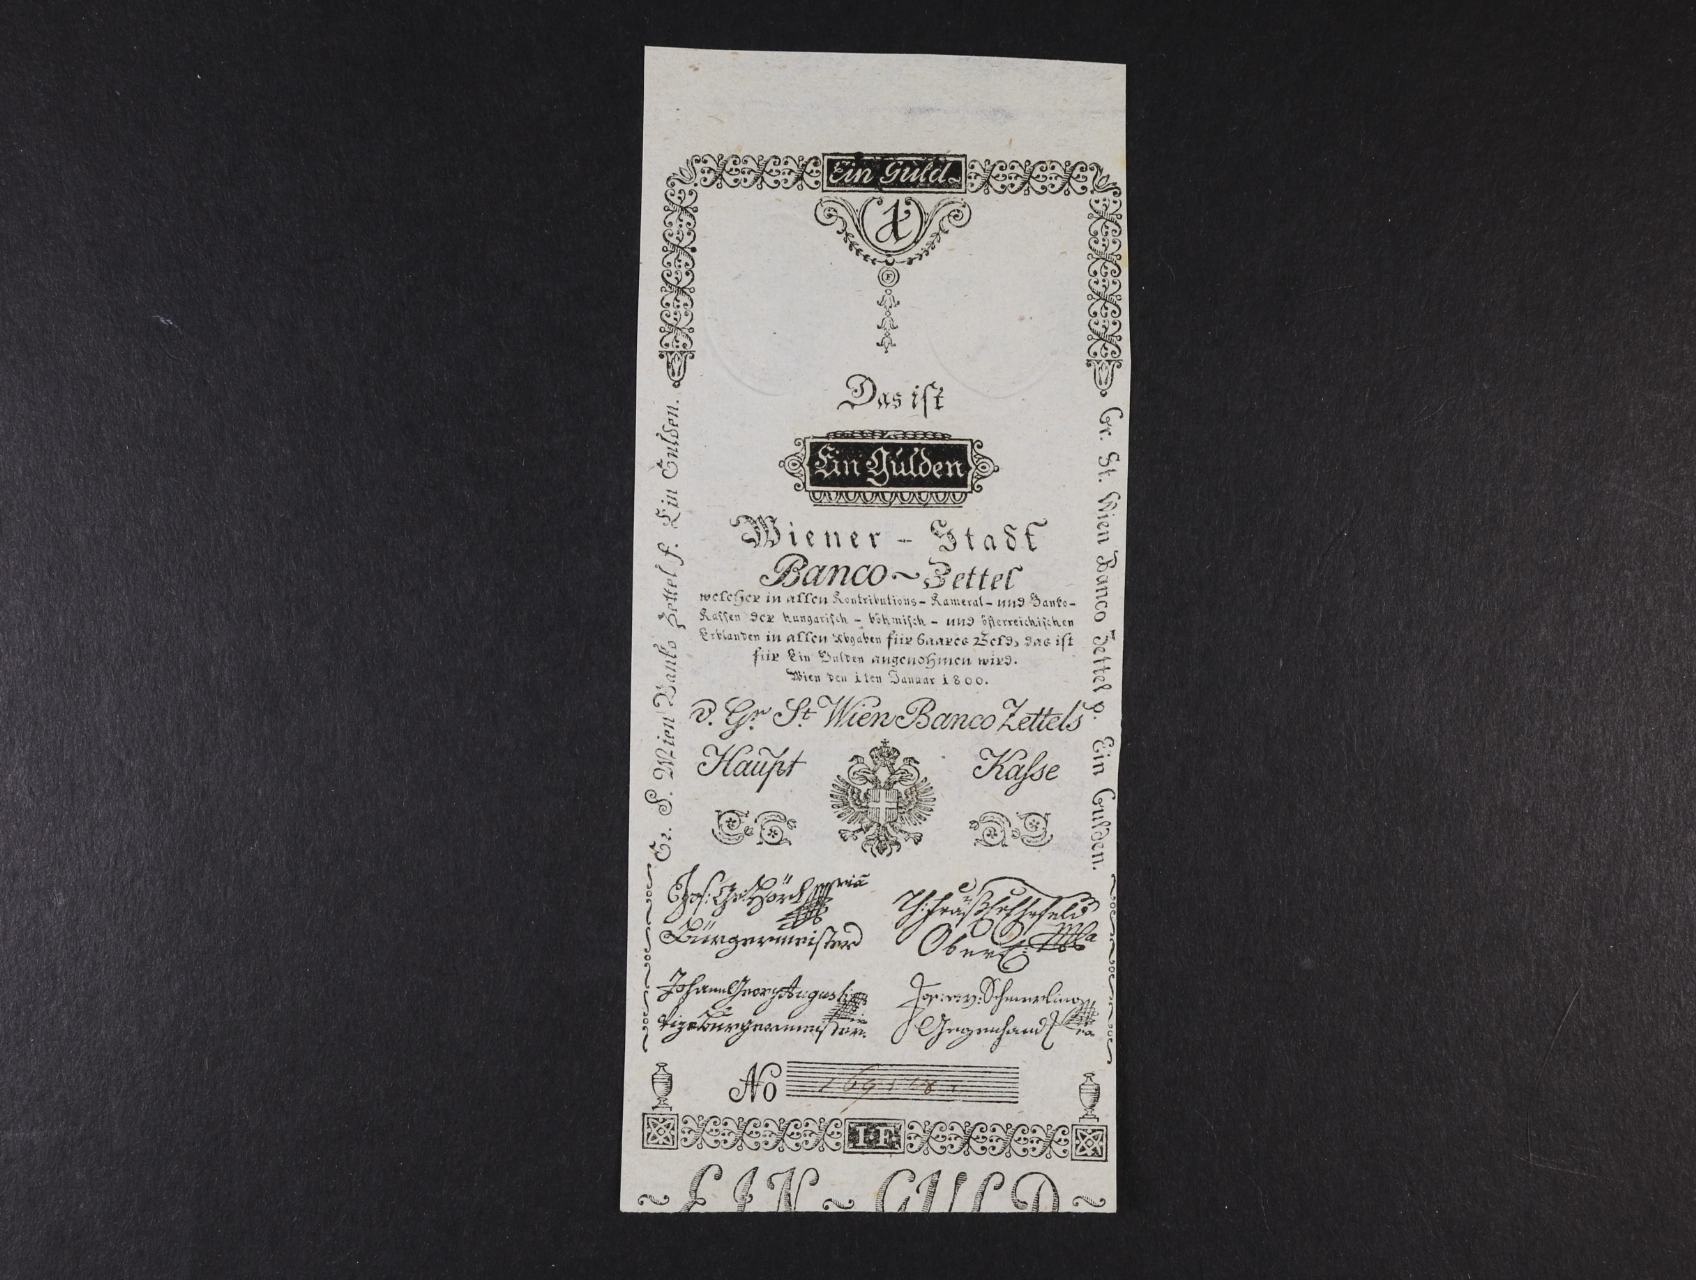 Ein Guld
1
F
Das ist
Ein Gulden
Wiener - Stadt
Banco ~ Zettel
welcher in allen Kontributions - Kameral - und Banko-
Kassen der hungarisch - böhmisch - und österreichischen
Erblanden in allen Abgaben für baares Geld, das ist
für Ein Gulden angenohmen wird.
Wien den 1ten Januar 1800.
Gr. S. Wien Banko Zettel f. Ein Gulden.
Gr. St. Wien Banco Zettel p. Ein Gulden.
v. Gr. St. Wien Banco Zettels
Haupt Kasse
Jos. Ge. Hörl
Bürgermeister
Oberk.
Johann Georg Augusti
Vizebürgermeister.
Schmerling
Gegenhand
No
I F
EIN ~ GULD